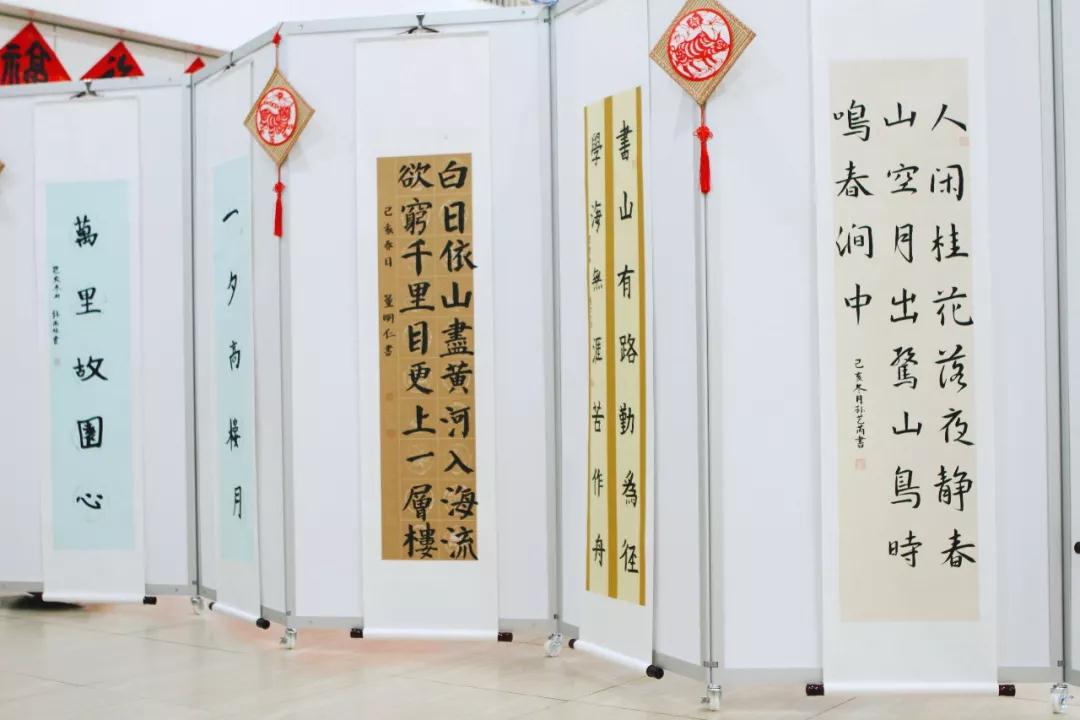 人闲桂花落夜静春
山空月出驚山鳥時
鳴春涧中
己亥冬月孙艺芮書
書山有路勤為径
學海無涯苦作舟
白日依山盡黄河入海流
欲窮千里目更上一層樓
己亥春日 董明仁書
一夕高樓月
萬里故園心
福